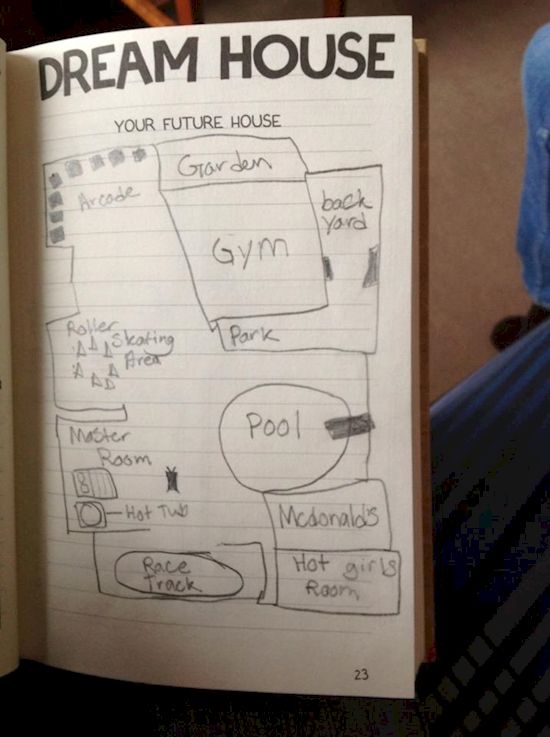 DREAM HOUSE
YOUR FUTURE HOUSE
Garden
Arcade
back
yard
Gym
Roller
Skating
Area
Park
Pool
Master
Room
8
Hot Tub
Mcdonald's
Race
Track
Hot girls
Room
23